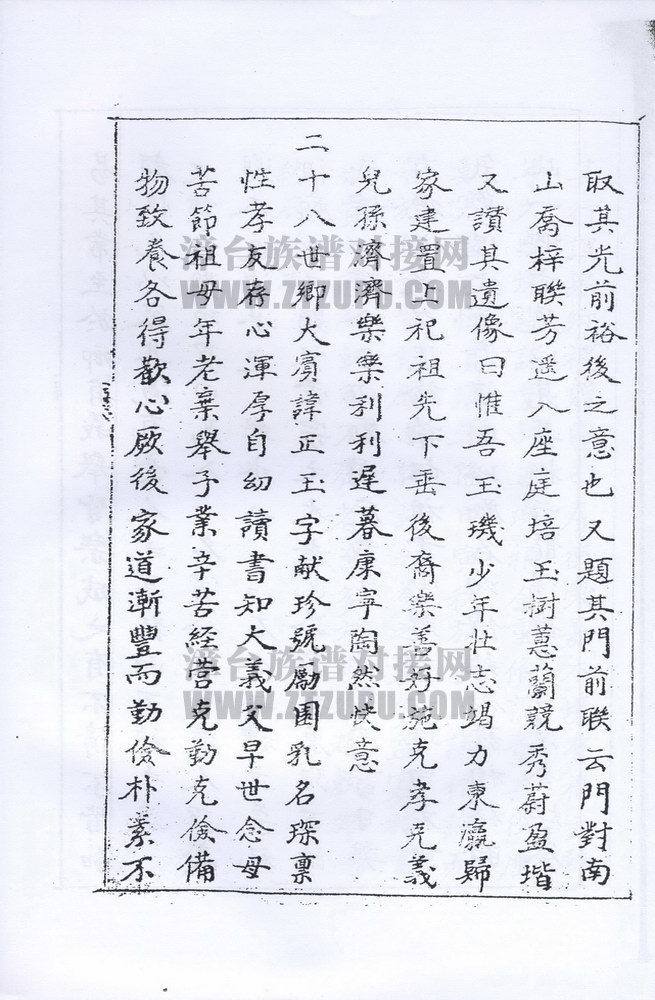 取其光前裕後之意也又題其門前聯云門對南
山喬梓聯芳遥入座庭培玉樹蕙蘭競秀蔚盈堦
又讚其遺像曰惟吾玉璣少年壯志竭力東瀛歸
家建置上祀祖先下垂後裔樂善好施克孝克義
兒孫濟濟樂樂利利遅暮康寕陶然快意
二十八世鄉大賓諱正玉字献珍號勵圃乳名琛禀
性孝友存心渾厚自幼讀書知大義父早世念母
苦節祖母年老棄舉子業辛苦経营克勤克儉備
物致養各得歡心厥後家道漸豐而勤儉朴素不
漳台族谱对接网
WWW.ZTZUPU.COM
漳台族谱对接网
WWW.ZTZUPU.COM